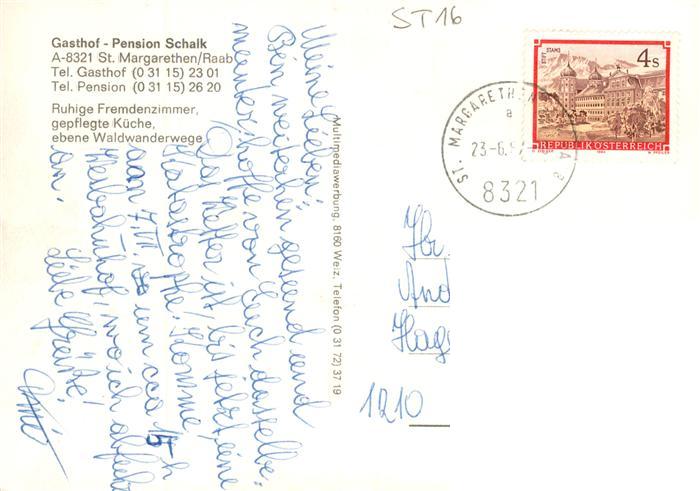 ST16
Gasthof - Pension Schalk
A-8321 St. Margarethen/Raab
Tel. Gasthof (0 31 15) 23 01
Tel. Pension (0 31 15) 26 20
Ruhige Fremdenzimmer,
gepflegte Küche,
ebene Waldwanderwege
Meine Lieben!
Bin weiterhin gesund und
munter, hoffe von Euch dasselbe.
Das Wetter ist bis jetzt eine
Katastrophe! Komme
am 7.VII. um cca 15 h
Westbahnhof
an.
Liebe Grüße!
Multimediawerbung, 8160 Weiz, Telefon (0 31 72) 37 19
STIFT STAMS
4 S
REPUBLIK ÖSTERREICH
ST. MARGARETHEN
a
23-6.
8321
Hr.
And
Hag
1210